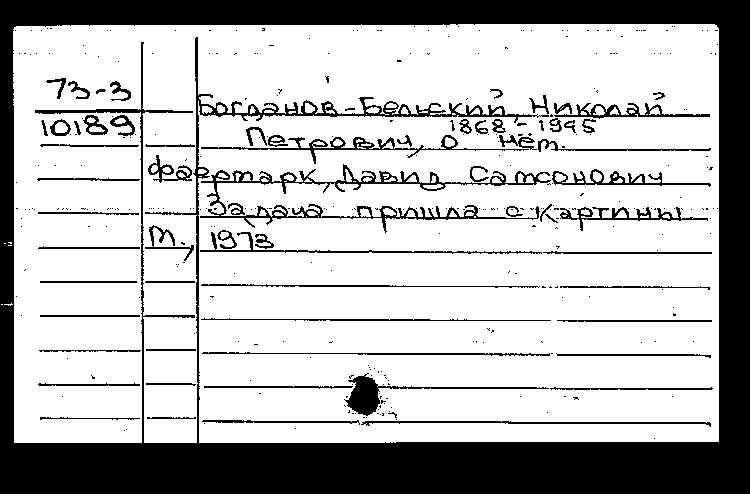 73-3
Богданов-Бельский, Николай
10189
1868-1945
Петрович, О нём.
Фаермарк, Давид Самсонович
Задача пришла с картины
М., 1973